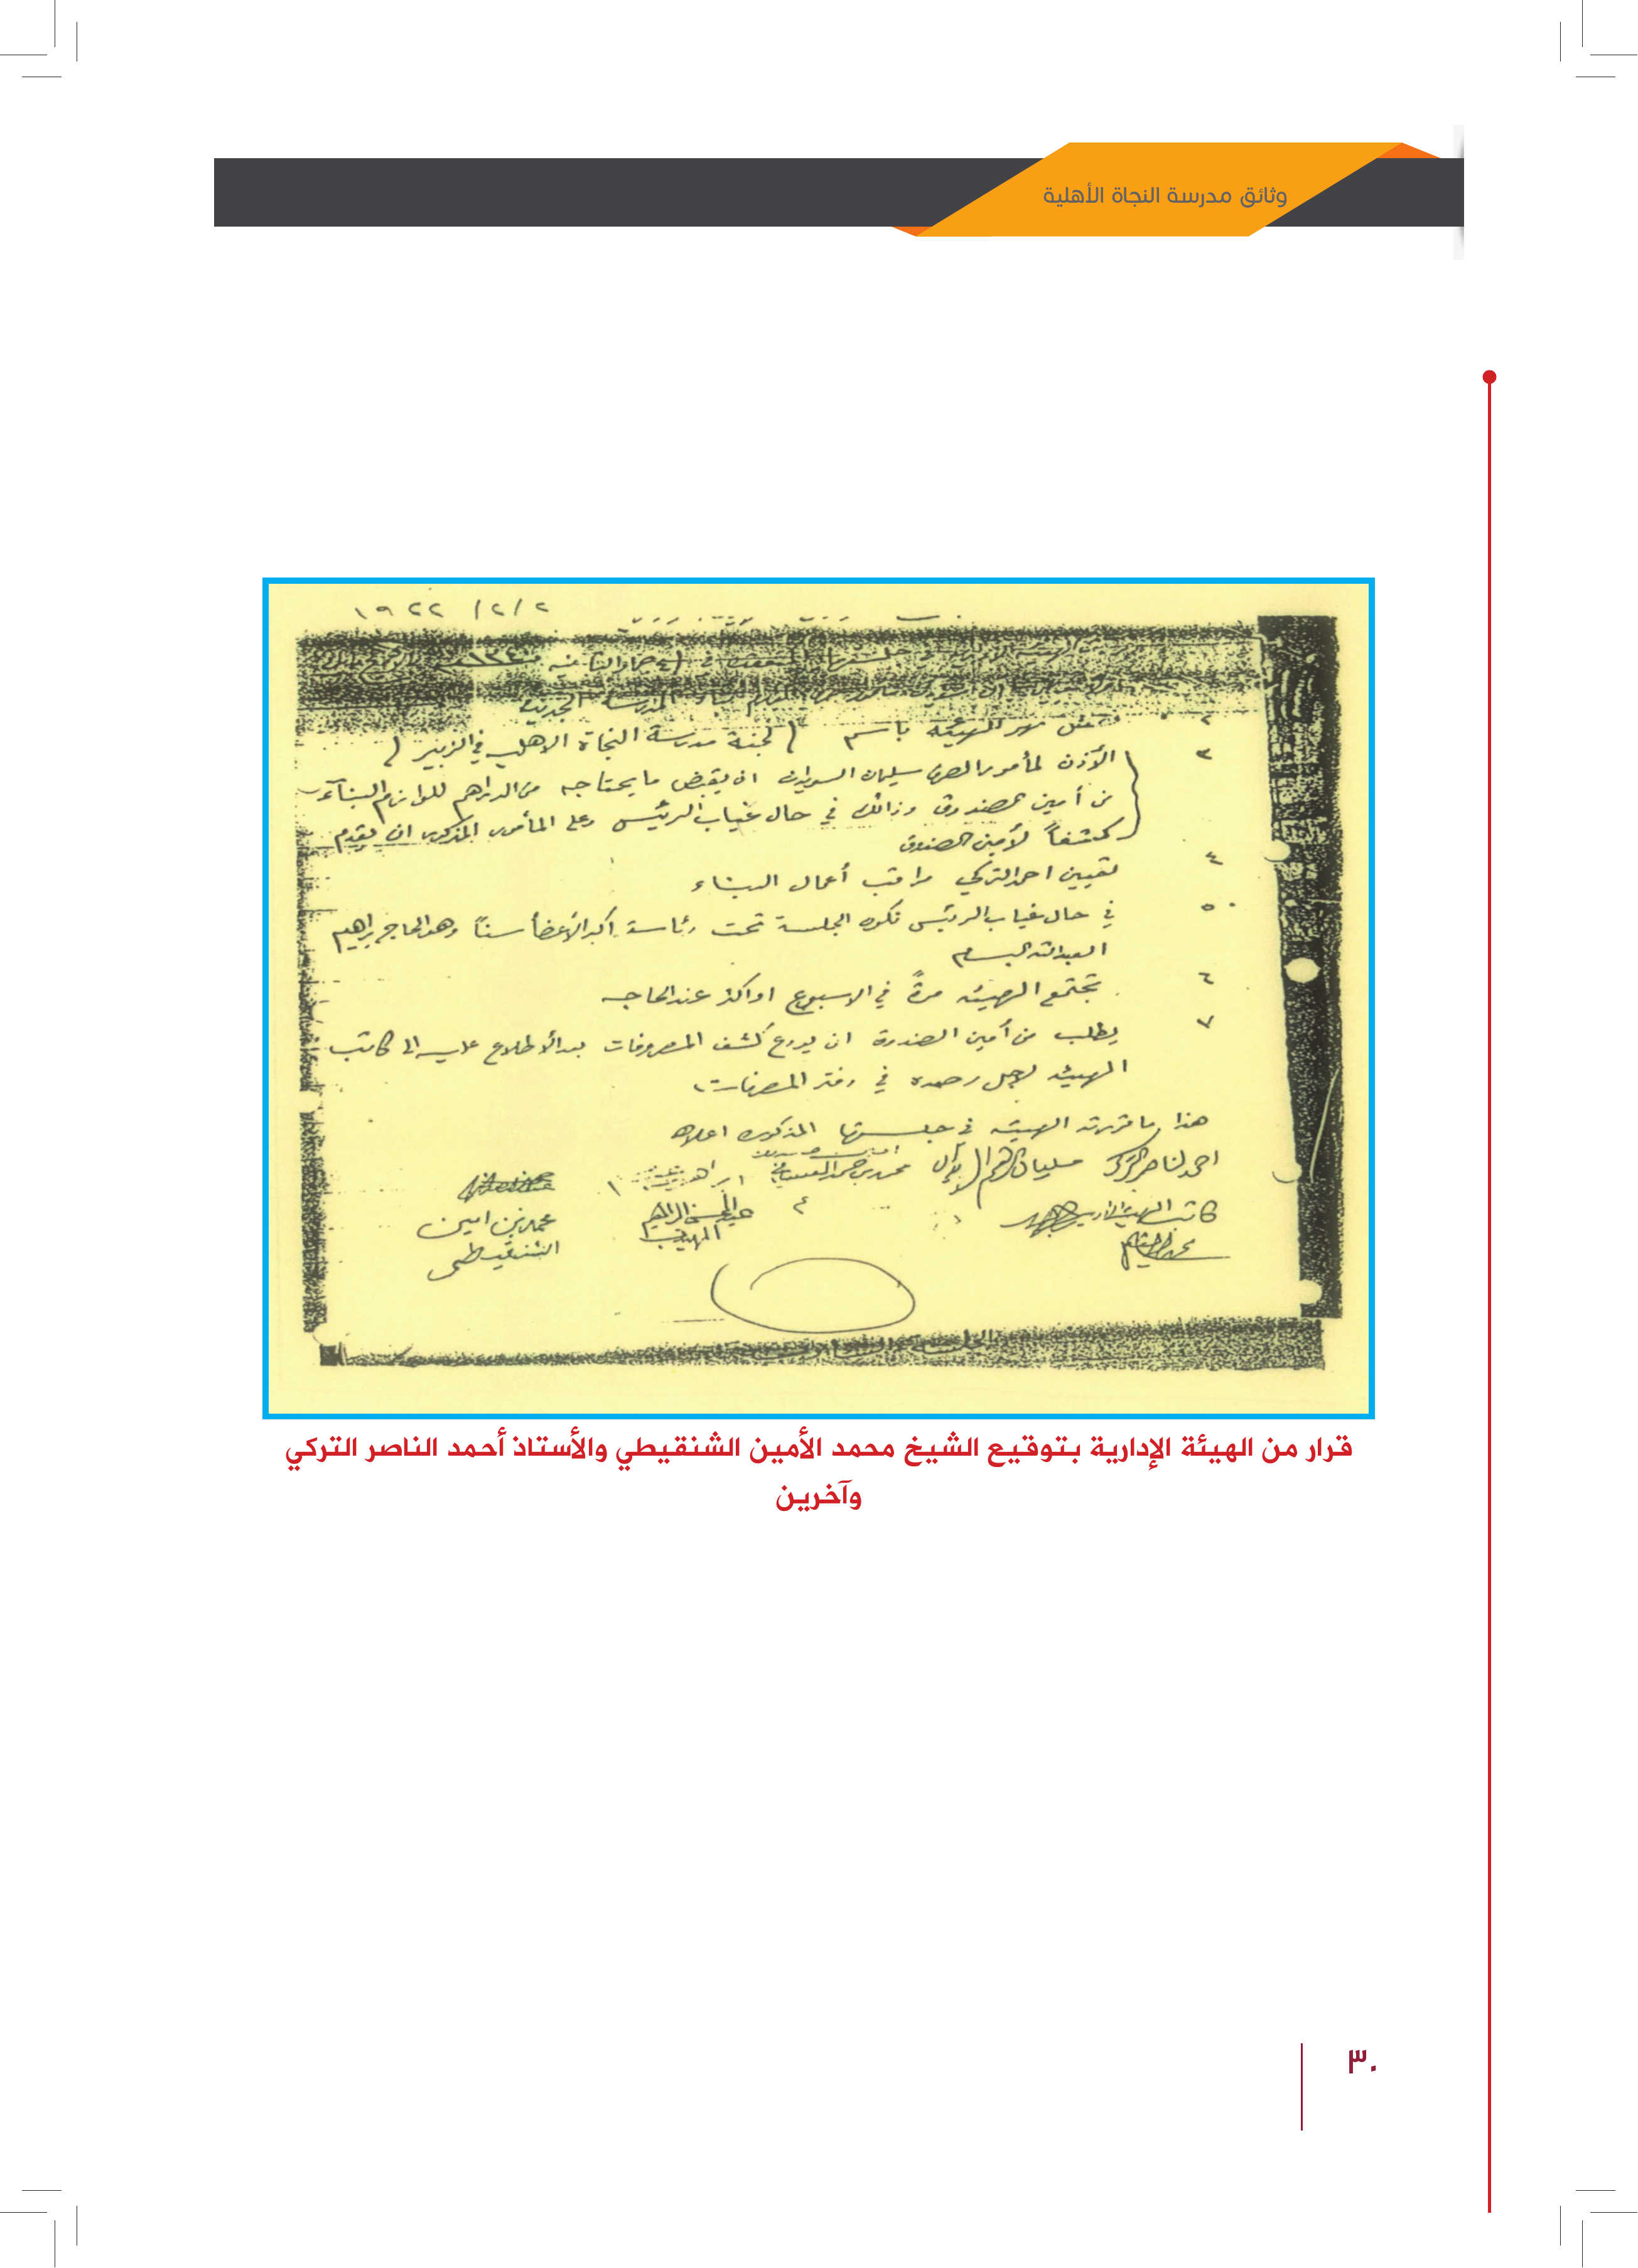 وثائق مدرسة النجاة الأهلية
١٩٢٢ /٢/٢
في جلستها المنعقدة في
المدرسة الجديدة
٢ باسم ( لجنة مدرسة النجاة الاهلية في الزبير )
٣ الأذن لمأمور الصرف سليمان السويدان ان يقبض ما يحتاجه من الدراهم للوازم البنآء
من أمين الصندوق وذالك في حال غياب الرئيس وعلى المأمور المذكور ان يقدم
كشفاً لأمين الصندوق
٤ تعيين احمد التركي مراقب أعمال البناء
٥ في حال غياب الرئيس تكون الجلسة تحت رئاسة أكبر الأعضأ سناً وهو الحاج ابراهيم
العبدالله البسام
٦ تجتمع الهيئه مرةً في الاسبوع او اكثر عند الحاجه
٧ يطلب من أمين الصندوق ان يودع كشف المصروفات بعد الأطلاع عليه الى كاتب
الهيئه لاجل رصده في دفتر المصرفات
هذا ما قررته الهيئه في جلستها المذكوره اعلاه
احمد الناصر التركي سليمان محمد بن حمد ابراهيم
كاتب الهيئة الادارية
عبدالمحسن ابراهيم
المهيدب
محمد بن امين
الشنقيطي
قرار من الهيئة الإدارية بتوقيع الشيخ محمد الأمين الشنقيطي والأستاذ أحمد الناصر التركي
وآخرين
٣٠